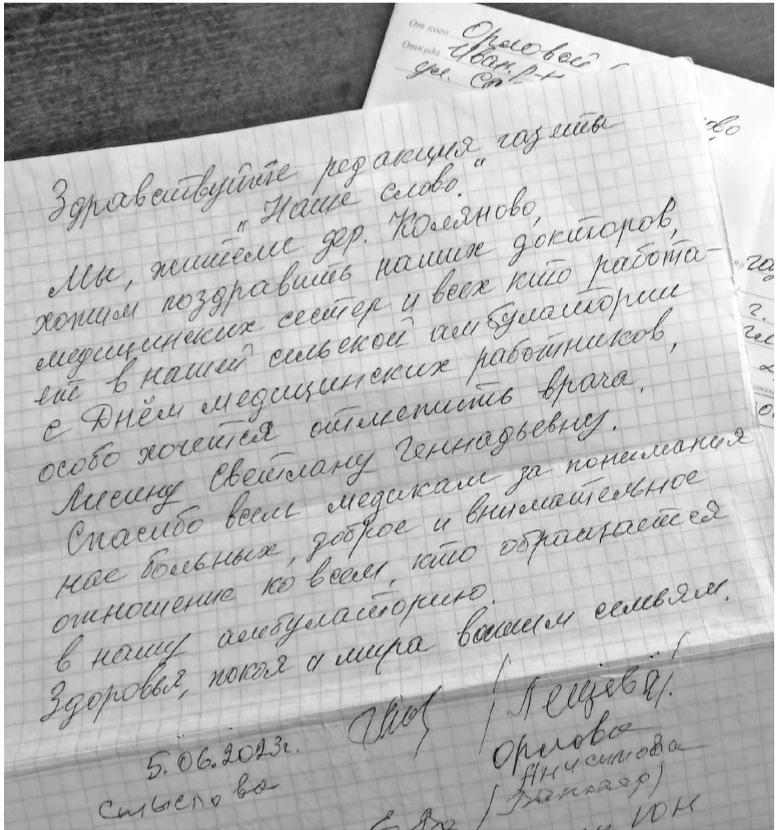 От кого Орловой
Откуда Иван. р-н
ул.
Здравствуйте редакция газеты
"Наше слово."
Мы, жители дер. Коляново,
хотим поздравить наших докторов,
медицинских сестер и всех кто работа-
ет в нашей сельской амбулатории
с Днём медицинских работников,
особо хочется отметить врача
Лисину Светлану Геннадьевну.
Спасибо всем медикам за понимания
нас больных, доброе и внимательное
отношение ко всем, кто обращается
в нашу амбулаторию.
Здоровья, покоя и мира вашим семьям.
5.06.2023г.
Орлова
Анисимова
Смыслова